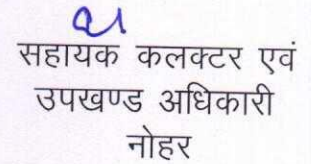 सहायक कलक्टर एवं
उपखण्ड अधिकारी
नोहर